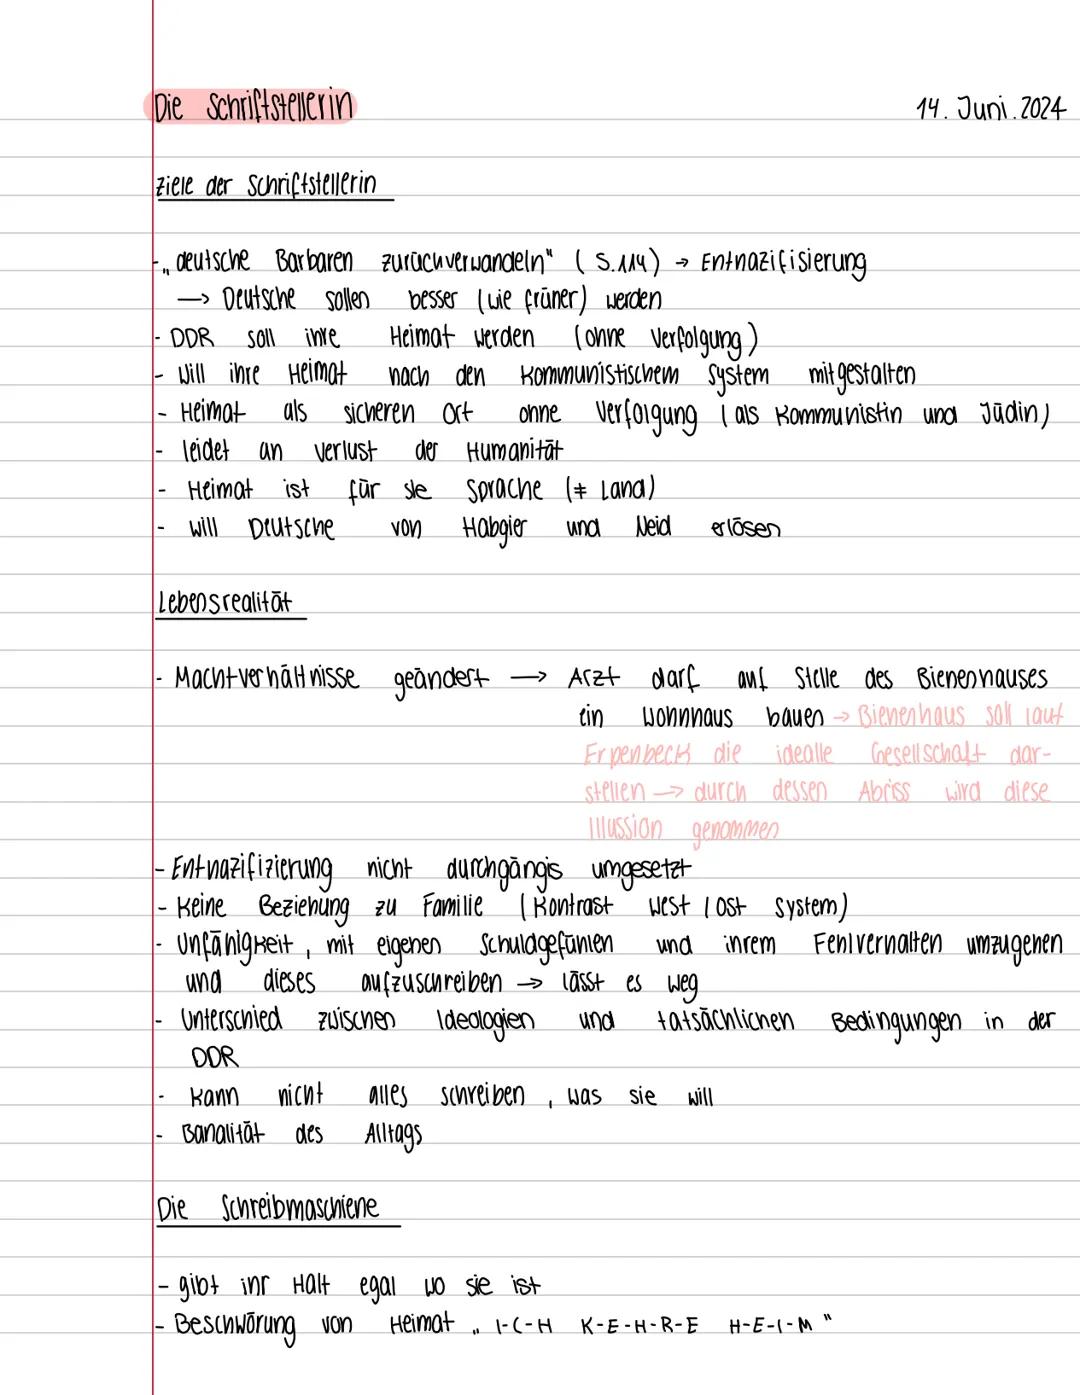 Die Schriftstellerin 14. Juni. 2024
Ziele der Schriftstellerin
- „deutsche Barbaren zurückverwandeln" (S.114) → Entnazifisierung
→ Deutsche sollen besser (wie früher) werden
- DDR soll ihre Heimat werden (ohne Verfolgung)
- Will ihre Heimat nach den kommunistischem System mitgestalten
- Heimat als sicheren Ort ohne Verfolgung (als Kommunistin und Jüdin)
- leidet an Verlust der Humanität
- Heimat ist für sie Sprache (≠ Land)
- will Deutsche von Habgier und Neid erlösen
Lebensrealität
- Machtverhältnisse geändert → Arzt darf auf Stelle des Bienenhauses
ein Wohnhaus bauen → Bienenhaus soll laut
Erpenbeck die idealle Gesellschaft dar-
stellen → durch dessen Abriss wird diese
Illussion genommen
- Entnazifizierung nicht durchgängig umgesetzt
- Keine Beziehung zu Familie (Kontrast West / Ost System)
- Unfähigkeit, mit eigenen Schuldgefühlen und ihrem Fehlverhalten umzugehen
und dieses aufzuschreiben → lässt es weg
- Unterschied zwischen Ideologien und tatsächlichen Bedingungen in der
DDR
- Kann nicht alles schreiben, was sie will
- Banalität des Alltags
Die Schreibmaschiene
- gibt ihr Halt egal wo sie ist
- Beschwörung von Heimat „I-C-H K-E-H-R-E H-E-I-M"